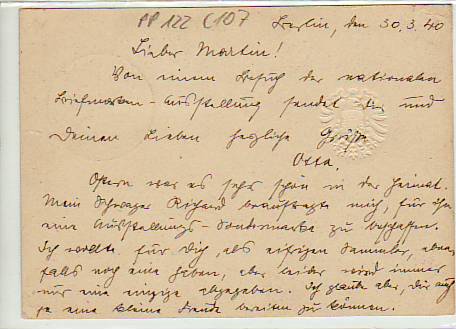 PP 122 C107
Berlin, den 30.3.40
Lieber Martin!
Von einem Besuch der nationalen
Briefmarken-Ausstellung sendet Dir und
Deinen Lieben herzliche Grüße
Otto.
Ostern war es sehr schön in der Heimat.
Mein Schwager Richard beauftragte mich, für ihn
eine Ausstellungs-Sondermarke zu beschaffen.
Ich wollte für Dich, als eifrigen Sammler, eben-
falls noch eine haben, aber leider wird immer
nur eine einzige abgegeben. Ich glaube aber, Dir auch
ja eine kleine Freude bereiten zu können.